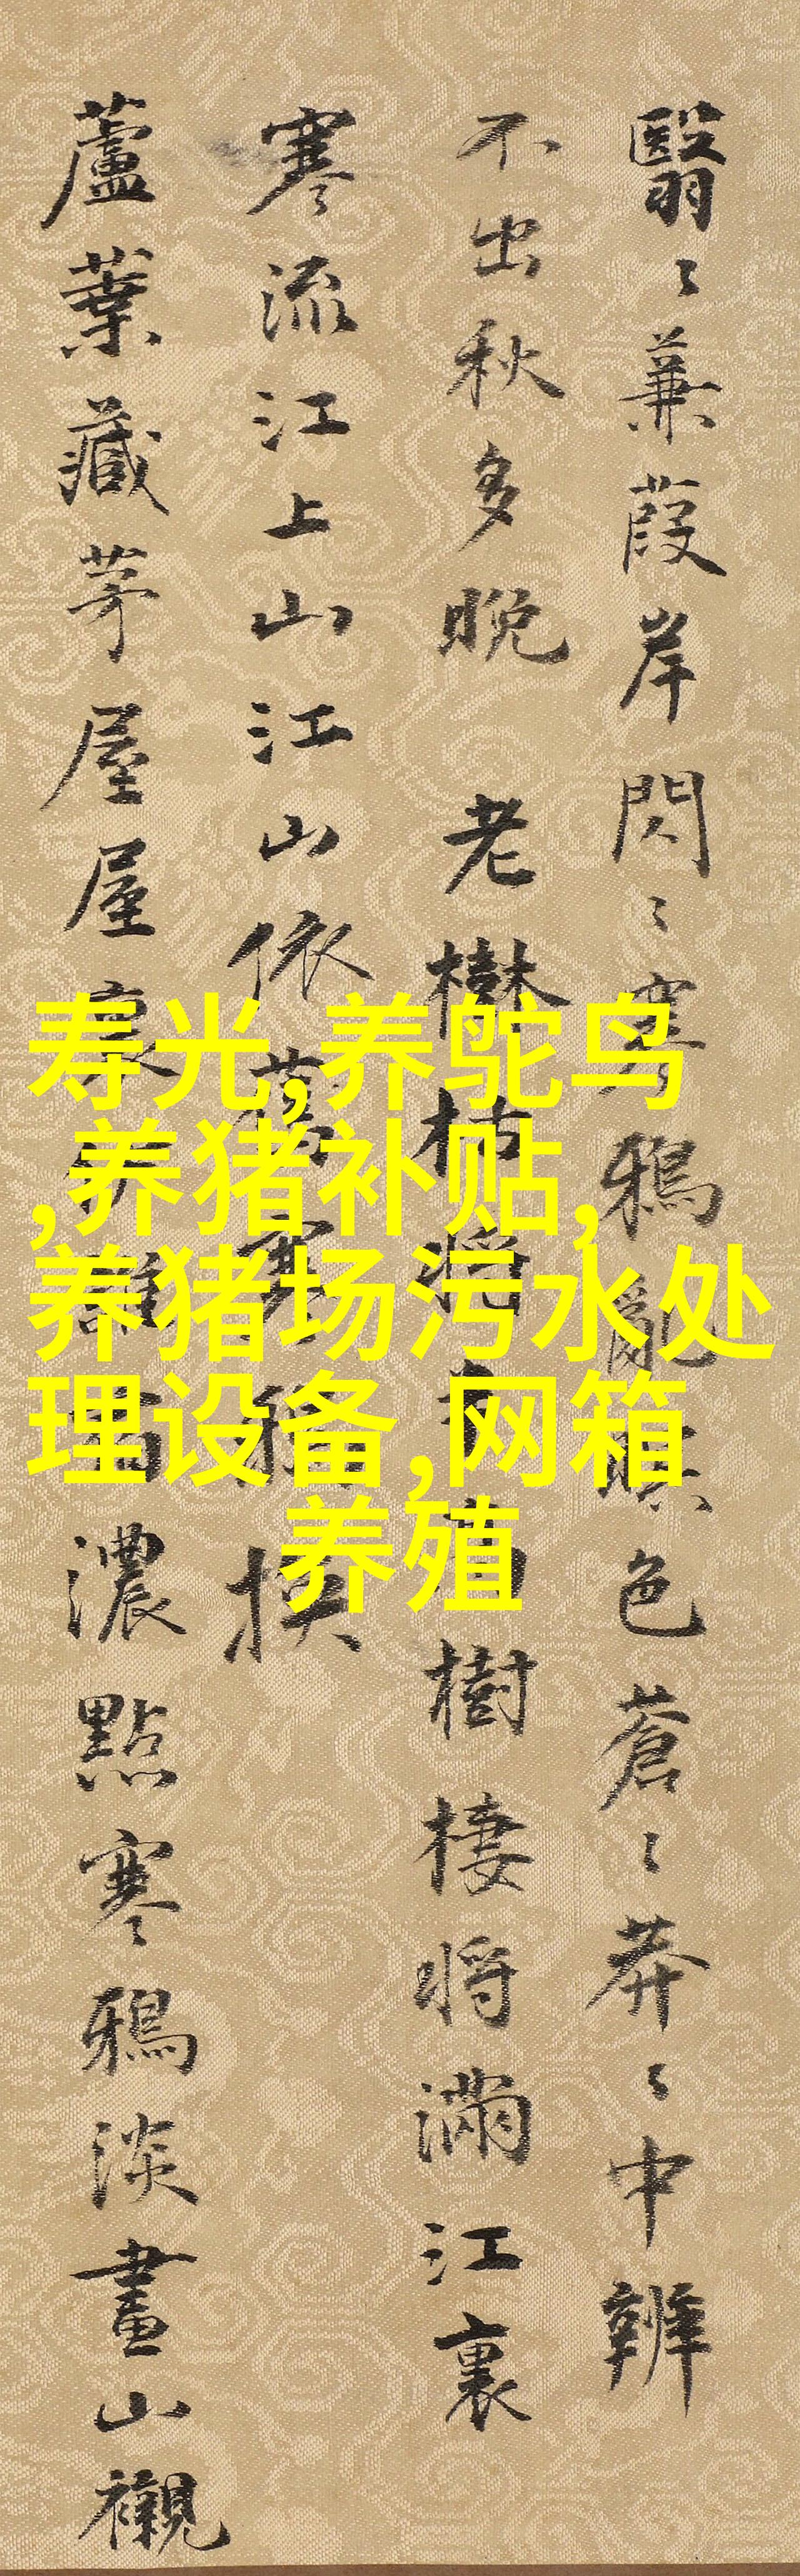 翳〻蒹葭岸閃〻寒鴉亂暝色蒼〻莽〻中辨
不出秋多晚 老樹枯將樹棲將滿江裏
寒流江上山江山依舊換
蘆葉藏茅屋屋裏濃點寒鴉淡畫山襯
寿光,养鸵鸟
,养猪补贴,
养猪场污水处
理设备,网箱
养殖